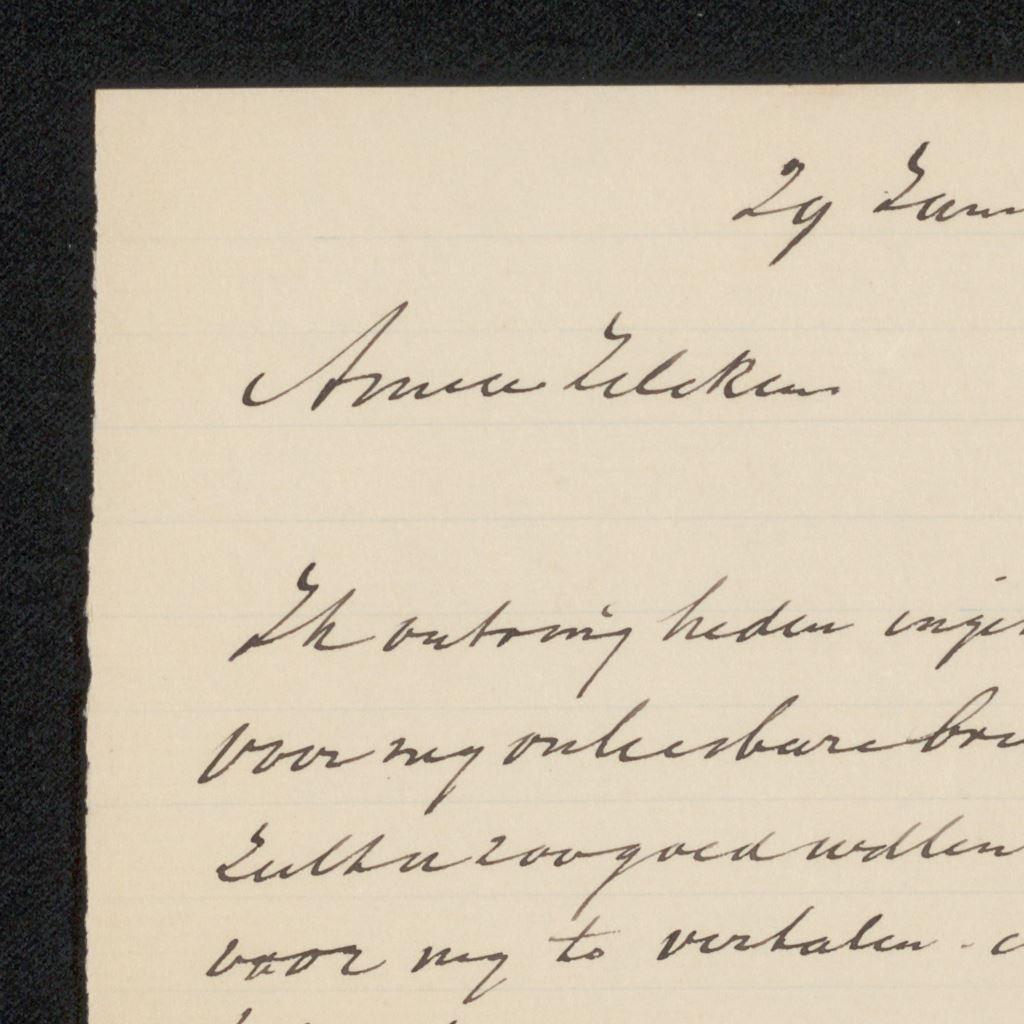 29 Jan
Amice Zilcken
Ik ontving heden
voor mij onleesbare
Zult u zoo goed willen
voor mij te vertalen